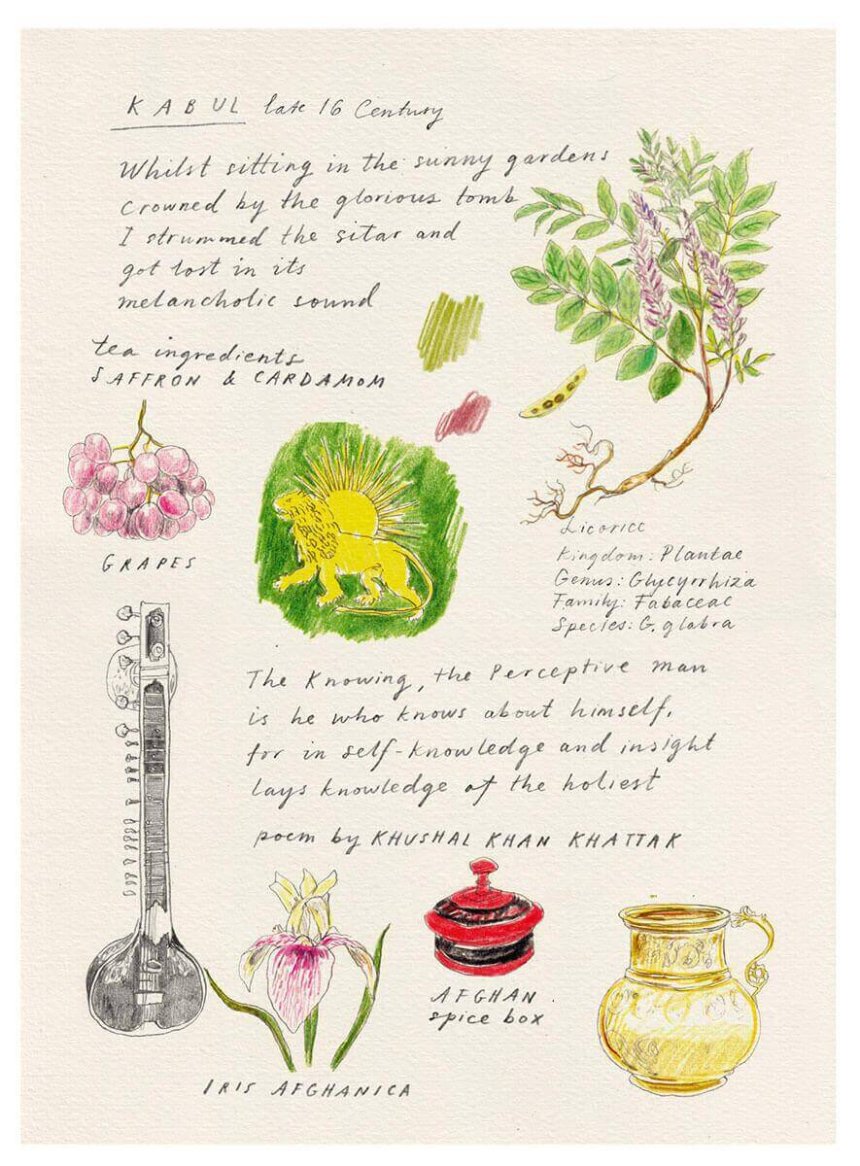 KABUL late 16 Century
Whilst sitting in the sunny gardens
crowned by the glorious tomb
I strummed the sitar and
got lost in its
melancholic sound
tea ingredients
SAFFRON & CARDAMOM
GRAPES
Licorice
Kingdom: Plantae
Genus: Glycyrrhiza
Family: Fabaceae
Species: G. glabra
The Knowing, the Perceptive man
is he who knows about himself,
for in self-knowledge and insight
lays knowledge of the holiest
poem by KHUSHAL KHAN KHATTAK
AFGHAN
spice box
IRIS AFGHANICA